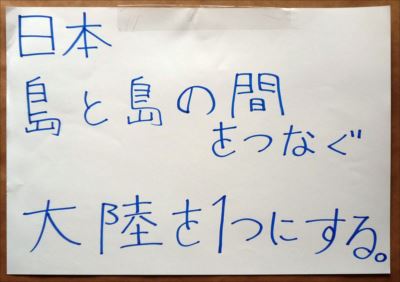 日本
島と島の間
をつなぐ
大陸を1つにする。